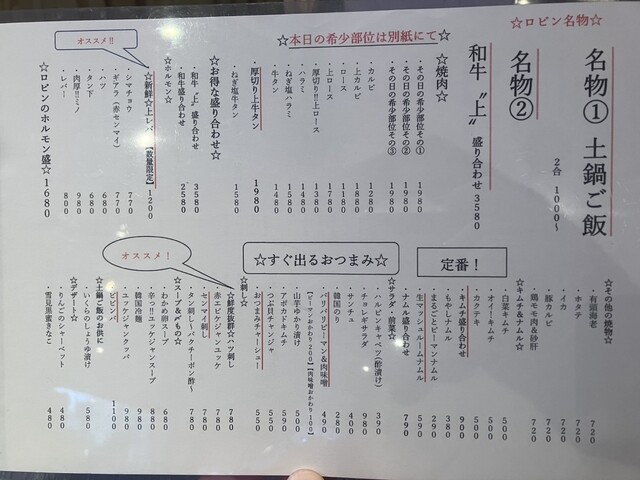 ☆ロビン名物☆
名物① 土鍋ご飯
2合 1000〜
名物②
和牛〝上〟盛り合わせ 3580
☆本日の希少部位は別紙にて☆
☆焼肉☆
・その日の希少部位① 1980
・その日の希少部位② 1980
・その日の希少部位③ 1980
・カルビ 1280
・上カルビ 1680
・ロース 1180
・上ロース 1780
・厚切り!!上ロース 1380
・ハラミ
・ねぎ塩ハラミ
・牛タン 1480
厚切り上牛タン 1980
・ねぎ塩牛タン 1580
☆お得な盛り合わせ☆
和牛〝上〟盛り合わせ 3580
・和牛盛り合わせ 2580
☆ホルモン☆
オススメ!!
☆新鮮☆上レバ【数量限定】 1200
・シマチョウ 770
・ギアラ(赤センマイ) 770
・ハツ 680
・タン下 680
・肉厚!!ミノ 980
・レバー 800
☆ロビンのホルモン盛☆1680
☆その他の焼物☆
・有頭海老 720
・ホタテ 720
・イカ 720
・豚カルビ 720
・鶏モモ肉&砂肝 720
定番!
☆キムチ&ナムル☆
・白菜キムチ 500
・オイ!キムチ 500
・カクテキ 500
キムチ盛り合わせ 900
・もやしナムル 380
・まるごとピーマンナムル 290
・生マッシュルームナムル 590
ナムル盛り合わせ 790
☆すぐ出るおつまみ☆
☆サラダ・前菜☆
・ハルピンキャベツ(酢漬け) 390
・チョレギサラダ 980
・サンチュ 400
・韓国のり 280
・パリパリピーマン&肉味噌 490
【ピーマンおかわり200】【肉味噌おかわり100】
・山芋ゆかり漬け 400
・アボカドキムチ 590
・つぶ貝チャンジャ 550
・おつまみチャーシュー 550
オススメ!
☆刺し☆
☆鮮度抜群☆ハツ刺し 780
・赤エビケジャンユッケ 780
・センマイ刺し 780
・タン刺し〜パクチーポン酢〜 780
☆スープ&〆もの☆
・わかめ卵スープ 680
・辛っ!!ユッケジャンスープ 880
・韓国冷麺 980
・ユッケジャンクッパ 980
ビビンバ 1100
☆土鍋ご飯のお供に
・いくらのしょうゆ漬け 580
☆デザート☆
・りんごのシャーベット 480
・雪見黒蜜きなこ 480